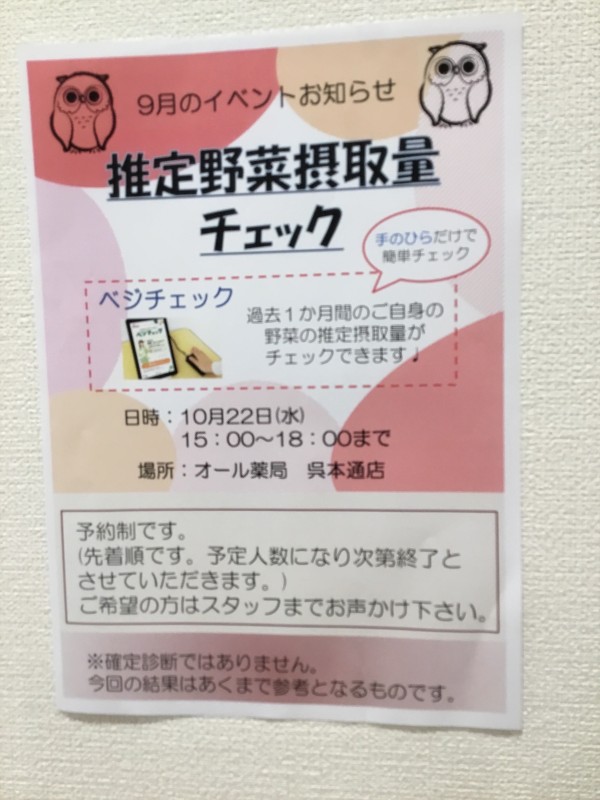 9月のイベントお知らせ
推定野菜摂取量
チェック
手のひらだけで
簡単チェック
ベジチェック
過去1か月間のご自身の
野菜の推定摂取量が
チェックできます♩
日時：10月22日(水)
15：00～18：00まで
場所：オール薬局　呉本通店
予約制です。
(先着順です。予定人数になり次第終了と
させていただきます。)
ご希望の方はスタッフまでお声かけ下さい。
※確定診断ではありません。
今回の結果はあくまで参考となるものです。